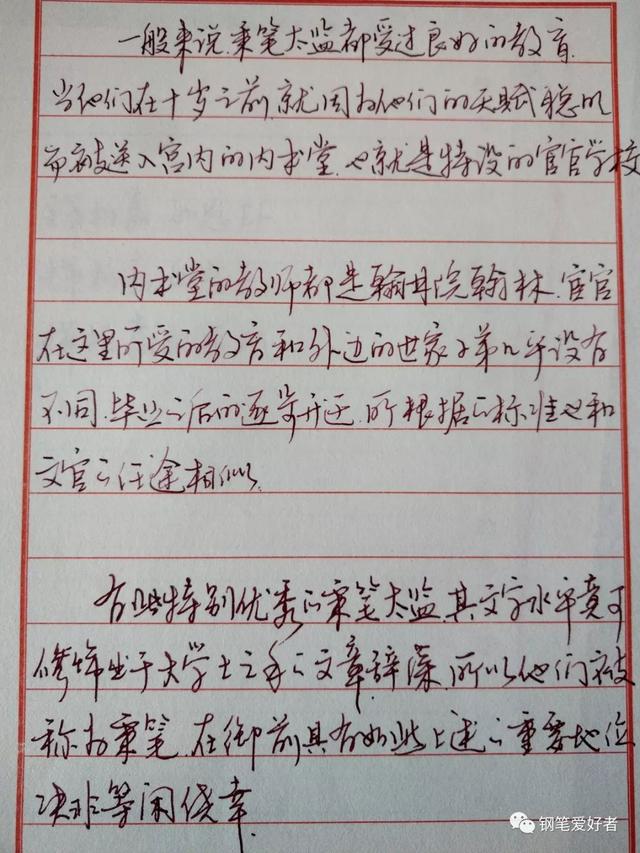 一般来说,秉笔太监都受过良好的教育.
当他们在十岁之前,就因为他们的天赋聪明
而被送入宫内的内书堂,也就是特设的宦官学校
内书堂的教师都是翰林院翰林,宦官
在这里所受的教育和外边的世家子弟几乎没有
不同.毕业之后的逐步升迁,所根据的标准也和
文官之仕途相似.
有些特别优秀的秉笔太监,其文字水平竟可
修饰出于大学士之手之文章辞藻,所以他们被
称为秉笔,在御前具有如此上述之重要地位
决非等闲侥幸.
钢笔爱好者